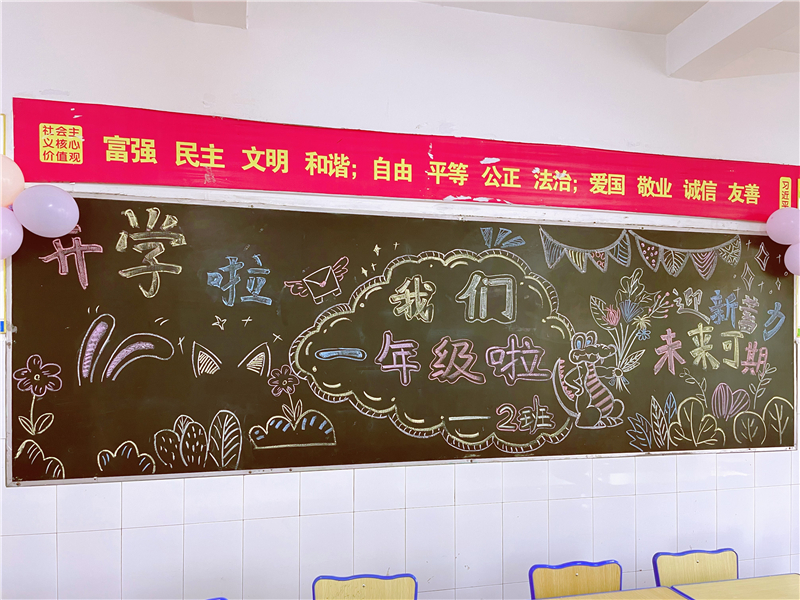 社会主
义核心
价值观
富强 民主 文明 和谐; 自由 平等 公正 法治; 爱国 敬业 诚信 友善
习近平
开学啦
我们
一年级啦
一2班
迎新蓄力
未来可期